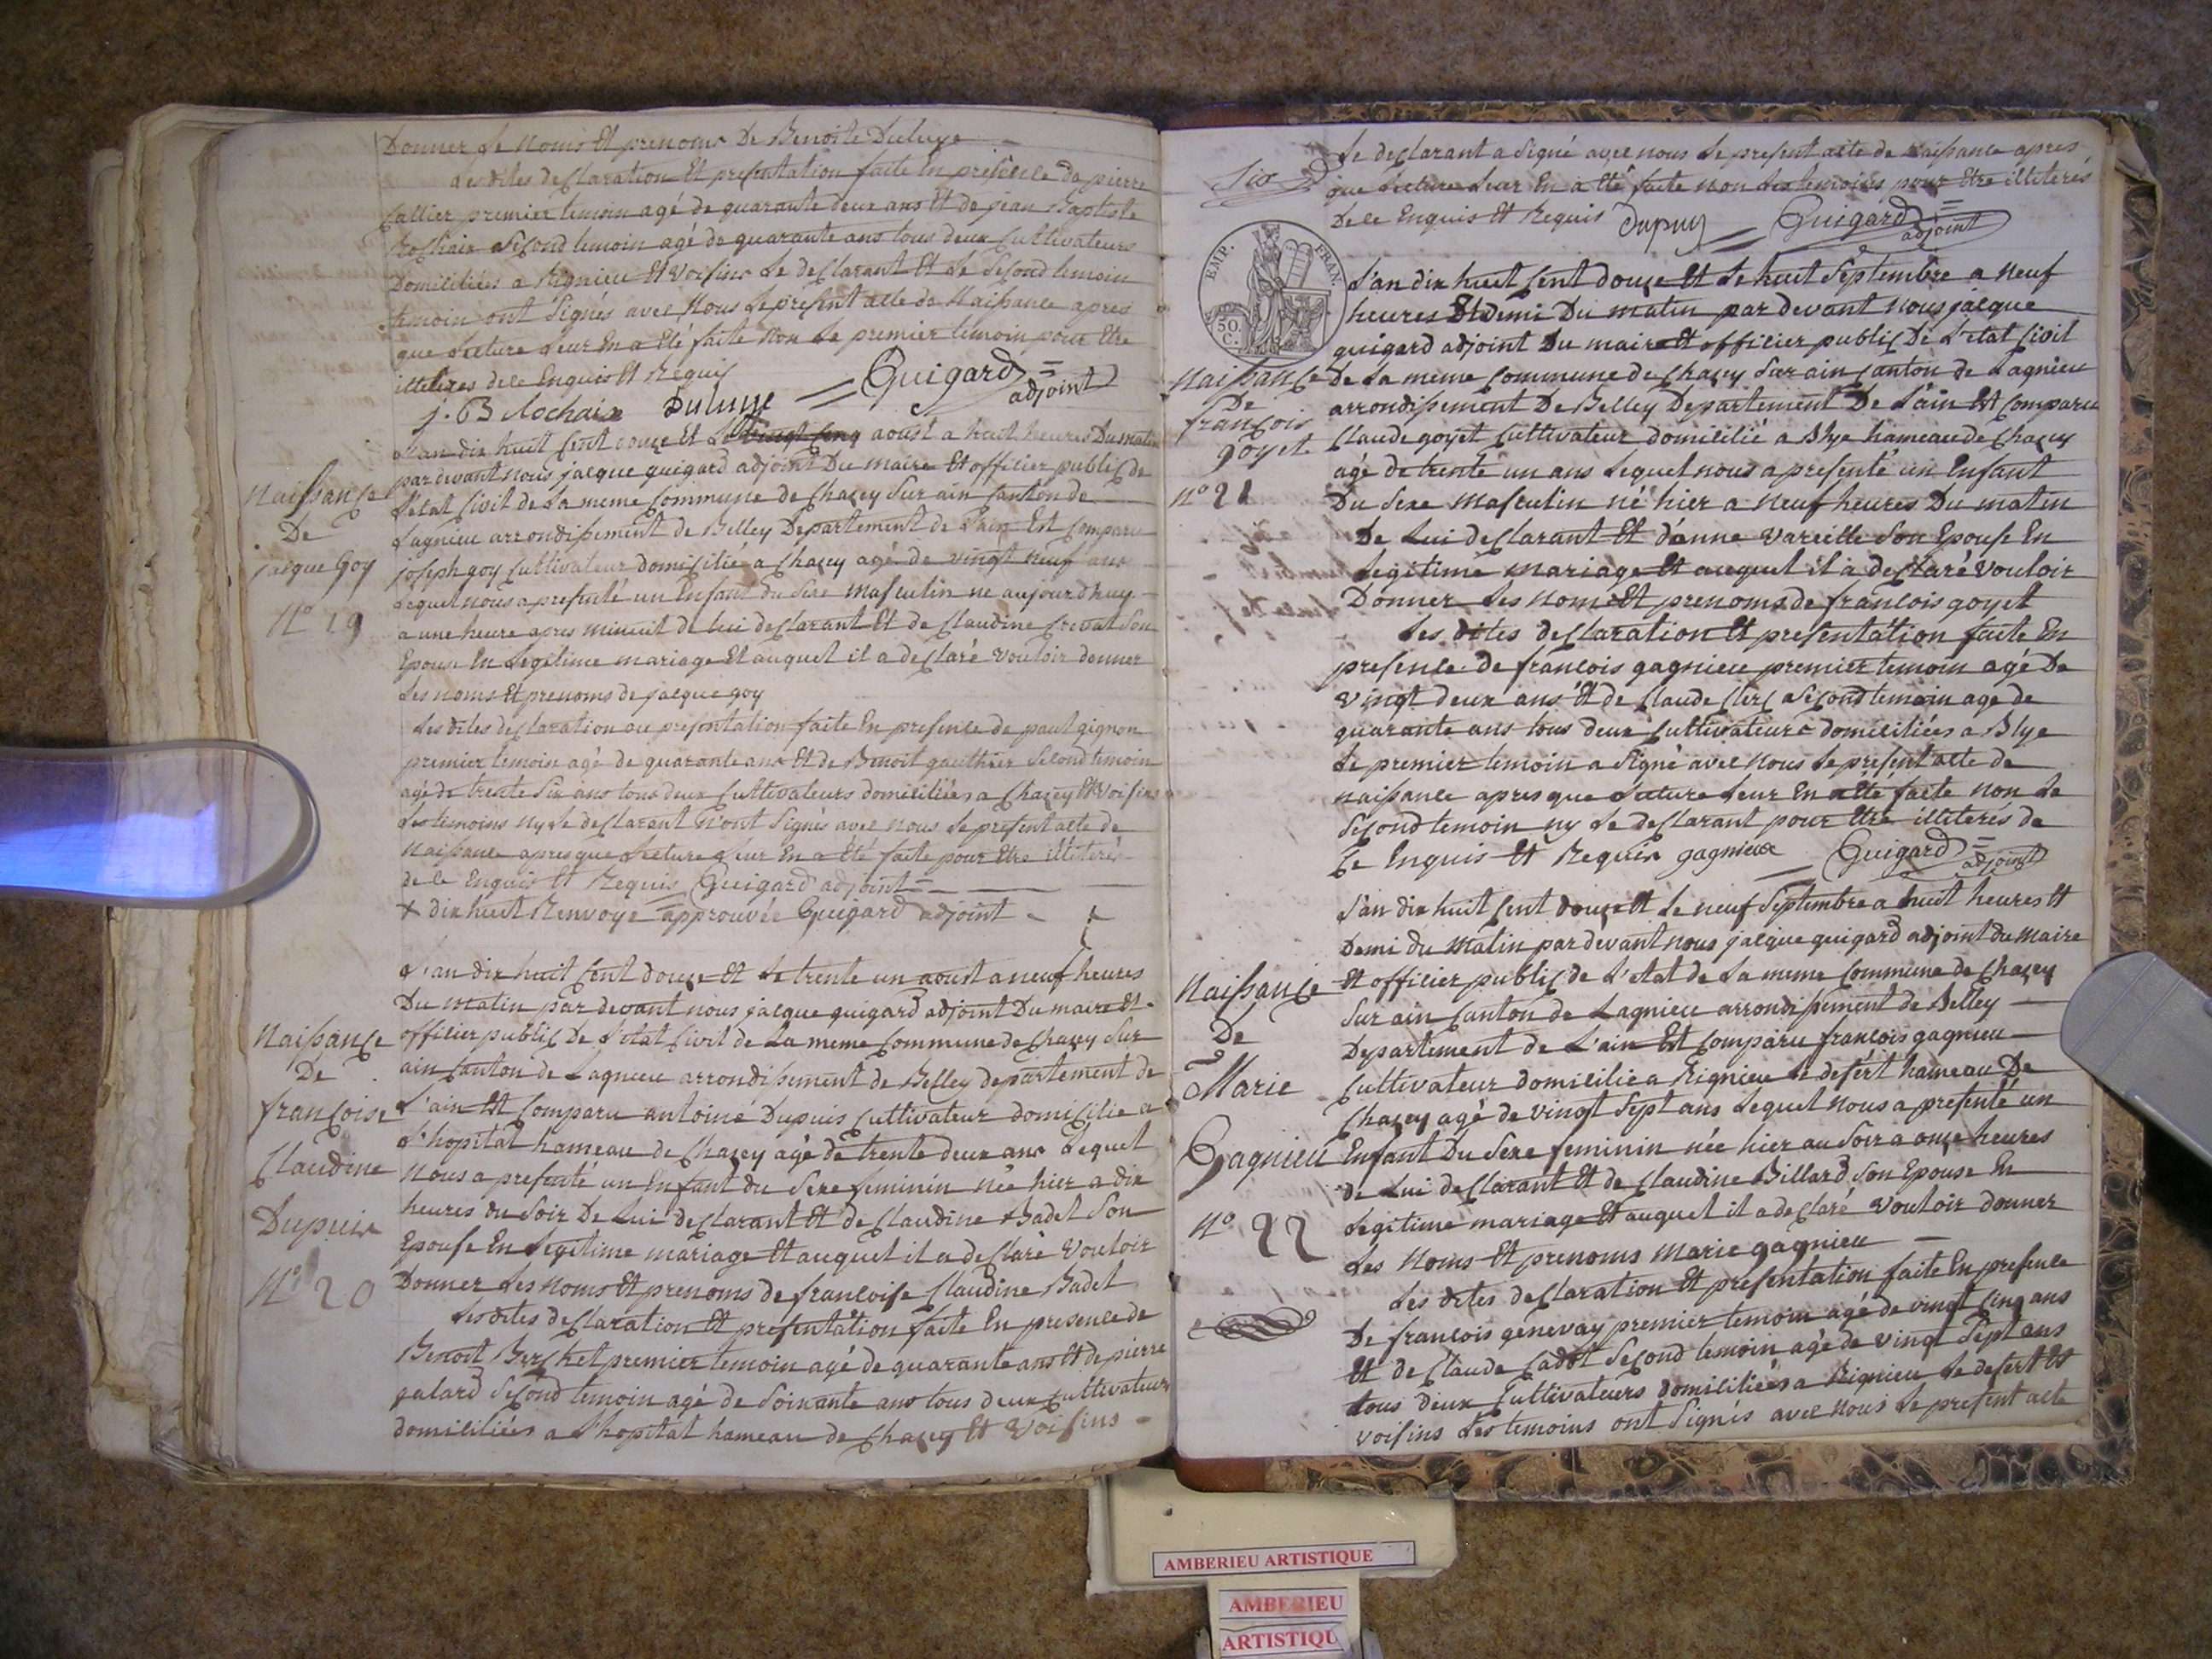 Donner Le Noms Et prenoms De Benoite Duluye
Les dites declaration Et presentation faite En presence de pierre
Callier premier temoin agé de quarante deux ans Et de jean Baptiste
Rochair Second temoin agé de quarante ans tous deux Cultivateurs
Domiciliées a Rignieu Et Voisins Le declarant Et Le Second temoin
temoin ont Signés avec Nous Le present acte de Naissance apres
que Lecture Leur En a Eté faite Non Le premier temoin pour Etre
illiteres de ce Enquis Et Requis
j. B Rochaix Duluye Guigard adjoint
L'an dix huit Cent douze Et Le vingt Cinq aoust a huit heures Du matin
par devant Nous jacque guigard adjoint Du maire Et officier public de
L'état Civil de La meme Commune de Chazey Sur ain Canton de
Lagnieu arrondissement de Belley Departement de L'ain Est Comparu
joseph goy Cultivateur domicilié a Chazey agé de vingt neuf ans
Lequel nous a presenté un Enfant du Sexe masculin ne aujourdhuy
a une heure apres minuit de Lui declarant Et de Claudine Crevat Son
Epouse En Legitime mariage Et auquel il a declaré Vouloir donner
Les noms Et prenoms de jacque goy
Naissance
De
jacque Goy
N° 19
Les dites declaration ou presentation faite En presence de paul gignon
premier temoin agé de quarante ans Et de Benoit gauthier Second temoin
agé de trente Six ans tous deux Cultivateurs domiciliées a Chazey Et Voisins
Les temoins Ny Le declarant N'ont Signés avec nous Le present acte de
Naissance apres que Lecture Leur En a Eté faite pour Etre illiterés
de ce Enquis Et Requis Guigard adjoint
+ dix huit Renvoye approuvée Guigard adjoint
L'an dix huit Cent douze Et Le trente un aoust a neuf heures
Du matin par devant nous jacque guigard adjoint Du maire Et
officier public De L'état Civil de La meme Commune de Chazey Sur
ain Canton de Lagnieu arrondissement de Belley departement de
L'ain Est Comparu antoine Dupuis Cultivateur domicilié a
L'hopital hameau de Chazey agé de trente deux ans Lequel
Nous a presenté un Enfant du Sexe feminin née hier a dix
heures du Soir De Lui declarant Et de Claudine Badel Son
Epouse En Legitime mariage Et auquel il a declaré Vouloir
Donner Les Noms Et prenoms de francoise Claudine Badel
Naissance
De
francoise
Claudine
Dupuis
N° 20
Les dites declaration Et presentation faite En presence de
Benoit Berchet premier temoin agé de quarante ans Et de pierre
galard Second temoin agé de Soixante ans tous deux Cultivateurs
domiciliées a L'hopital hameau de Chazey Et Voisins
Six
Le declarant a Signé avec nous Le present acte de Naissance apres
que Lecture Leur En a Eté faite Non Les temoins pour Etre illiterés
De ce Enquis Et Requis Dupuy Guigard adjoint
EMP. FRAN.
50 C.
L'an dix huit Cent douze Et Le huit Septembre a Neuf
heures Et demi Du matin par devant Nous jacque
guigard adjoint Du maire Et officier public De L'etat Civil
de La meme Commune de Chazey Sur ain Canton de Lagnieu
arrondissement De Belley Departement De L'ain Est Comparu
Claude goyet Cultivateur domicilié a Blye hameau de Chazey
agé de trente un ans Lequel nous a presenté un Enfant
Du Sexe masculin né hier a Neuf heures Du matin
De Lui declarant Et d'anne Vareille Son Epouse En
Legitime mariage Et auquel il a declaré Vouloir
Donner Les Nom Et prenoms de francois goyet
Naissance
De
francois
goyet
N° 21
Les dites declaration Et presentation faite En
presence de francois gagnieu premier temoin agé De
vingt deux ans Et de Claude Clerc Second temoin agé de
quarante ans tous deux Cultivateurs domiciliées a Blye
Le premier temoin a Signé avec Nous Le present acte de
naissance apres que Lecture Leur En a Eté faite Non Le
Second temoin ny Le declarant pour Etre illiterés de
Ce Enquis Et Requis gagnieux Guigard adjoint
L'an dix huit Cent douze Et Le neuf Septembre a huit heures Et
Demi du matin par devant nous jacque guigard adjoint du maire
Et officier public de L'etat de La meme Commune de Chazey
Sur ain Canton de Lagnieu arrondissement de Belley
Departement de L'ain Est Comparu francois gagnieu
Cultivateur domicilié a Rignieu Le desert hameau De
Chazey agé de vingt Sept ans Lequel nous a presenté un
Enfant Du Sexe feminin née hier au Soir a onze heures
de Lui declarant Et de Claudine Billard Son Epouse En
Legitime mariage Et auquel il a declaré Vouloir donner
Les Noms Et prenoms Marie gagnieu
Naissance
De
Marie
Gagnieu
N° 22
Les dites declaration Et presentation faite En presence
De francois genevay premier temoin agé de vingt Cinq ans
Et de Claude Cadot Second temoin agé de vingt Sept ans
tous deux Cultivateurs domiciliées a Rignieu Le desert Et
voisins Les temoins ont Signés avec Nous Le present acte
AMBERIEU ARTISTIQUE
AMBERIEU
ARTISTIQU